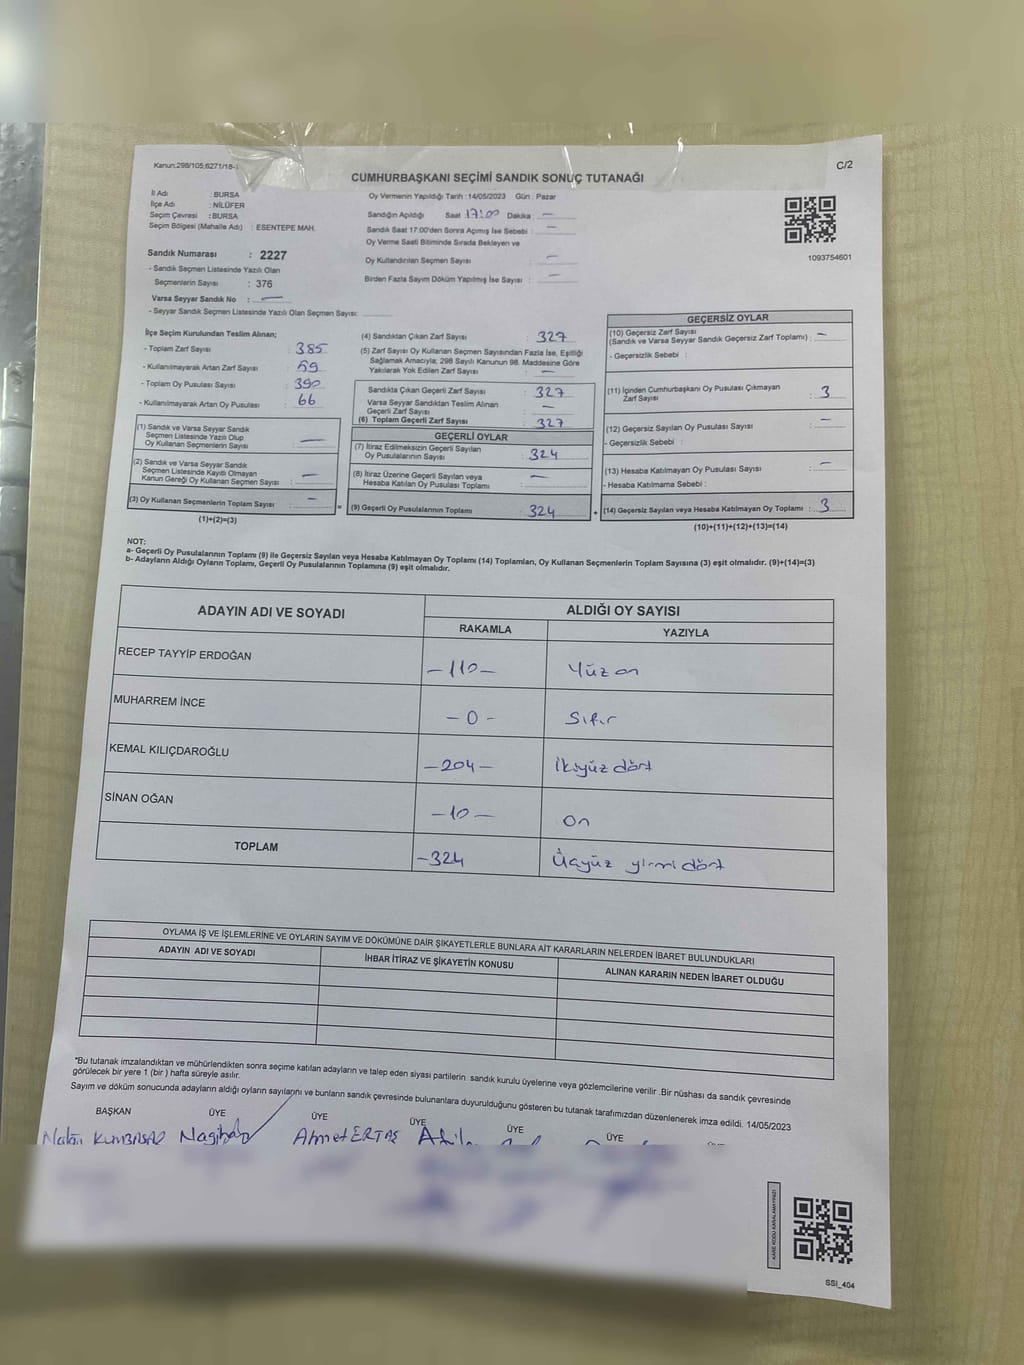 Kanun:298/105,6271/18-1
C/2
CUMHURBAŞKANI SEÇİMİ SANDIK SONUÇ TUTANAĞI
İl Adı : BURSA
İlçe Adı : NİLÜFER
Seçim Çevresi : BURSA
Seçim Bölgesi (Mahalle Adı) : ESENTEPE MAH.
Sandık Numarası : 2227
- Sandık Seçmen Listesinde Yazılı Olan
Seçmenlerin Sayısı : 376
Varsa Seyyar Sandık No : —
- Seyyar Sandık Seçmen Listesinde Yazılı Olan Seçmen Sayısı:
Oy Vermenin Yapıldığı Tarih : 14/05/2023 Gün : Pazar
Sandığın Açıldığı Saat 17:00 Dakika : —
Sandık Saat 17:00'den Sonra Açımış İse Sebebi : —
Oy Verme Saati Bitiminde Sırada Bekleyen ve
Oy Kullandırılan Seçmen Sayısı : —
Birden Fazla Sayım Döküm Yapılmış İse Sayısı : —
1093754601
İlçe Seçim Kurulundan Teslim Alınan;
- Toplam Zarf Sayısı : 385
- Kullanılmayarak Artan Zarf Sayısı : 59
- Toplam Oy Pusulası Sayısı : 390
- Kullanılmayarak Artan Oy Pusulası : 66
(1) Sandık ve Varsa Seyyar Sandık
Seçmen Listesinde Yazılı Olup
Oy Kullanan Seçmenlerin Sayısı : —
(2) Sandık ve Varsa Seyyar Sandık
Seçmen Listesinde Kayıtlı Olmayan
Kanun Gereği Oy Kullanan Seçmen Sayısı : —
(3) Oy Kullanan Seçmenlerin Toplam Sayısı : —
(1)+(2)=(3)
(4) Sandıktan Çıkan Zarf Sayısı : 327
(5) Zarf Sayısı Oy Kullanan Seçmen Sayısından Fazla İse, Eşitliği
Sağlamak Amacıyla; 298 Sayılı Kanunun 98. Maddesine Göre
Yakılarak Yok Edilen Zarf Sayısı : —
Sandıkta Çıkan Geçerli Zarf Sayısı : 327
Varsa Seyyar Sandıktan Teslim Alınan
Geçerli Zarf Sayısı : —
(6) Toplam Geçerli Zarf Sayısı : 327
GEÇERLİ OYLAR
(7) İtiraz Edilmeksizin Geçerli Sayılan
Oy Pusulalarının Sayısı : 324
(8) İtiraz Üzerine Geçerli Sayılan veya
Hesaba Katılan Oy Pusulası Toplamı : —
(9) Geçerli Oy Pusulalarının Toplamı : 324
GEÇERSİZ OYLAR
(10) Geçersiz Zarf Sayısı
(Sandık ve Varsa Seyyar Sandık Geçersiz Zarf Toplamı) : —
- Geçersizlik Sebebi :
(11) İçinden Cumhurbaşkanı Oy Pusulası Çıkmayan
Zarf Sayısı : 3
(12) Geçersiz Sayılan Oy Pusulası Sayısı : —
- Geçersizlik Sebebi :
(13) Hesaba Katılmayan Oy Pusulası Sayısı : —
- Hesaba Katılmama Sebebi :
(14) Geçersiz Sayılan veya Hesaba Katılmayan Oy Toplamı : 3
(10)+(11)+(12)+(13)=(14)
NOT:
a- Geçerli Oy Pusulalarının Toplamı (9) ile Geçersiz Sayılan veya Hesaba Katılmayan Oy Toplamı (14) Toplamları, Oy Kullanan Seçmenlerin Toplam Sayısına (3) eşit olmalıdır. (9)+(14)=(3)
b- Adayların Aldığı Oyların Toplamı, Geçerli Oy Pusulalarının Toplamına (9) eşit olmalıdır.
ADAYIN ADI VE SOYADI ALDIĞI OY SAYISI
RAKAMLA YAZIYLA
RECEP TAYYİP ERDOĞAN -110- Yüz on
MUHARREM İNCE -0- Sıfır
KEMAL KILIÇDAROĞLU -204- İkiyüz dört
SİNAN OĞAN -10- On
TOPLAM -324 Üçyüz yirmi dört
OYLAMA İŞ VE İŞLEMLERİNE VE OYLARIN SAYIM VE DÖKÜMÜNE DAİR ŞİKAYETLERLE BUNLARA AİT KARARLARIN NELERDEN İBARET BULUNDUKLARI
ADAYIN ADI VE SOYADI İHBAR İTİRAZ VE ŞİKAYETİN KONUSU ALINAN KARARIN NEDEN İBARET OLDUĞU
*Bu tutanak imzalandıktan ve mühürlendikten sonra seçime katılan adayların ve talep eden siyasi partilerin sandık kurulu üyelerine veya gözlemcilerine verilir .Bir nüshası da sandık çevresinde
görülecek bir yere 1 (bir ) hafta süreyle asılır.
Sayım ve döküm sonucunda adayların aldığı oyların sayılarını ve bunların sandık çevresinde bulunanlara duyurulduğunu gösteren bu tutanak tarafımızdan düzenlenerek imza edildi. 14/05/2023
BAŞKAN ÜYE ÜYE ÜYE ÜYE ÜYE
Ahmet ERTAŞ
KARE KODU KARALAMAYINIZ!
SSI_404